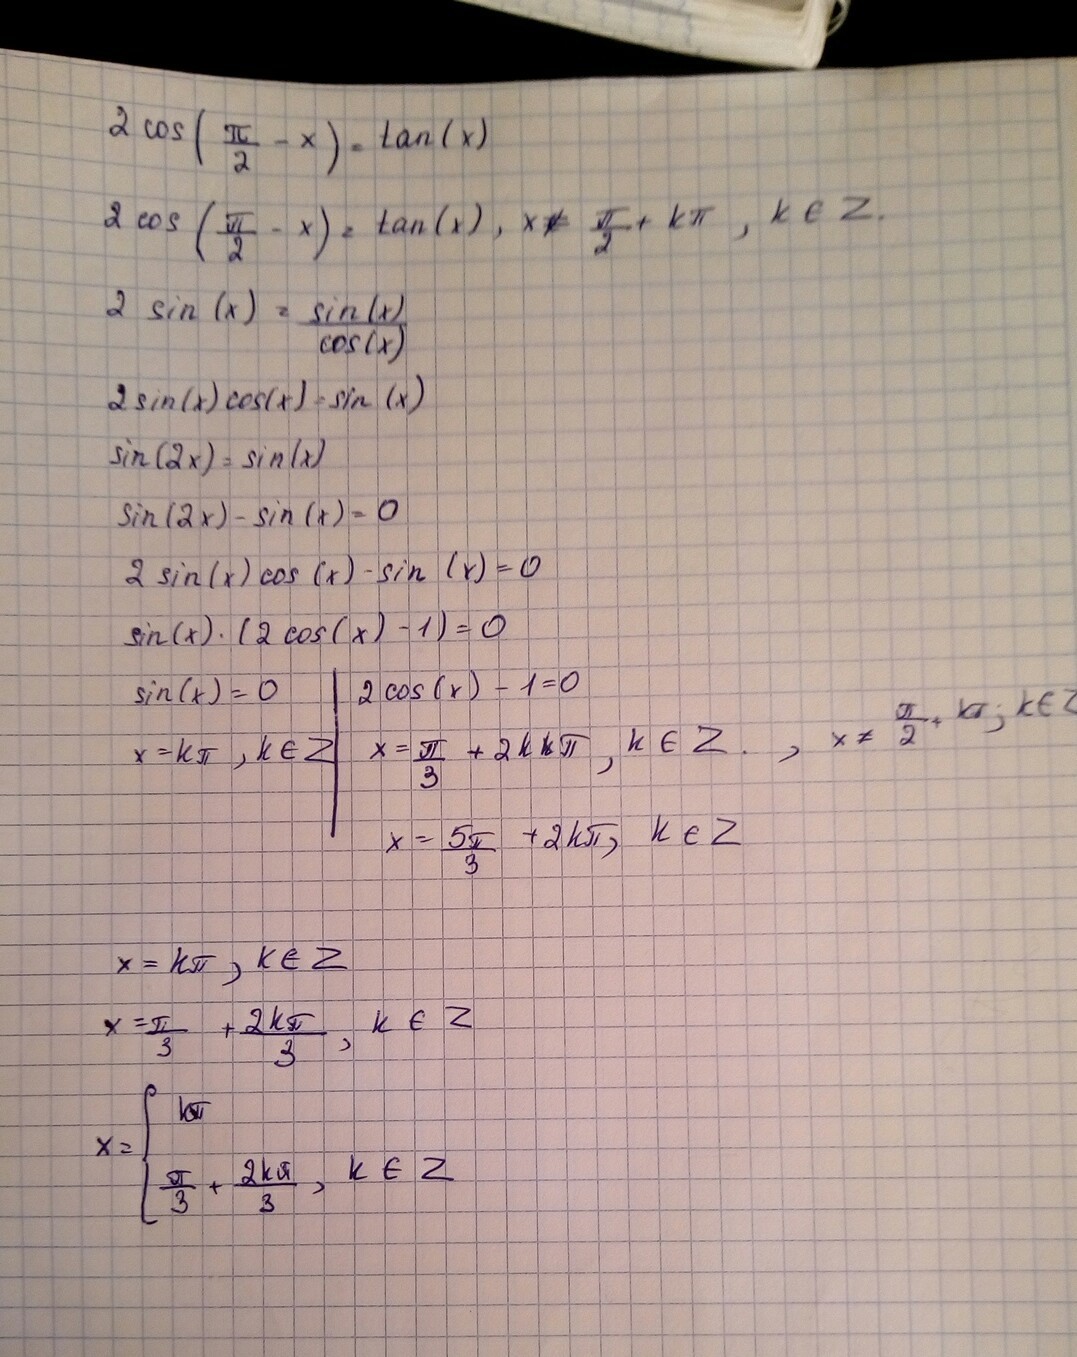 2 cos(π/2 - x) = tan(x)
2 cos(π/2 - x) = tan(x), x ≠ π/2 + kπ, k ∈ Z.
2 sin(x) = sin(x)/cos(x)
2 sin(x) cos(x) = sin(x)
sin(2x) = sin(x)
sin(2x) - sin(x) = 0
2 sin(x) cos(x) - sin(x) = 0
sin(x) · (2 cos(x) - 1) = 0
sin(x) = 0 | 2 cos(x) - 1 = 0
x = kπ, k ∈ Z | x = π/3 + 2kπ, k ∈ Z. , x ≠ π/2 + kπ; k ∈ Z
x = 5π/3 + 2kπ, k ∈ Z
x = kπ, k ∈ Z
x = π/3 + 2kπ/3, k ∈ Z
x = { kπ
π/3 + 2kπ/3, k ∈ Z